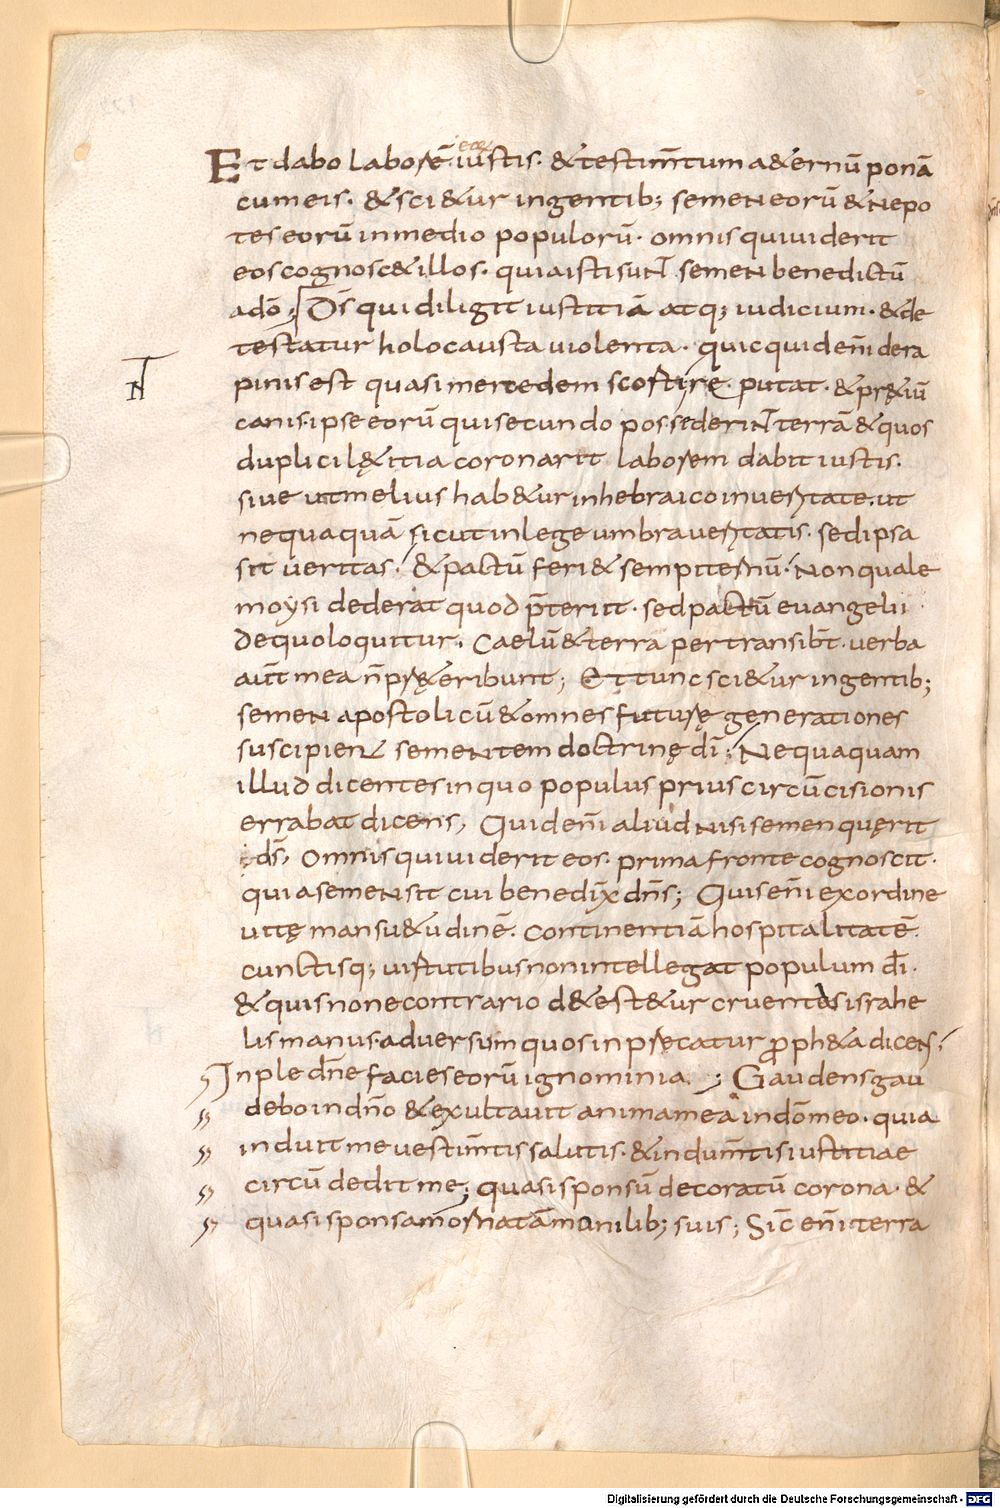 Et dabo laborē iustis · & testim̄tum a&ernū ponā
cum eis · & sci&ur in gentib; semen eorū & nepo
tes eorū in medio populorū · omnis qui uiderit
eos cognosc& illos · quia isti sunt semen benedictū
a dō; Dś qui diligit iustitiā atq; iudicium · & de
testatur holocausta uiolenta · quicquid enī de ra
pinis est quasi mercedem scorti putat · & p̄tiū
canis · ipse eorū qui secundo possederint terrā & quos
duplici l&itia coronarit laborem dabit iustis ·
siue ut melius hab&ur in hebraico in ueritate · ut
nequaquā sicut in lege umbra ueritatis · sed ipsa
sit ueritas · & pactū feri& sempiternū · Non quale
moysi dederat quod p̄teriit · sed pactū euangelii ·
de quo loquitur · Caelū & terra pertransibt̄ · uerba
aut̄ mea n̄ pręteribunt; Et tunc sci&ur in gentib;
semen apostolicū & omnes futurę generationes
suscipient sementem doctrinę dī; Nequaquam
illud dicentes in quo populus prius circūcisionis
errabat dicens, Quid enī aliud nisi semen quęrit
dś, Omnis qui uiderit eos · prima fronte cognoscit ·
quia semen sit cui benedixit dns̄; Quis enī ex ordine
uitę mansu&udinē · continentiā hospitalitatē ·
cunctisq; uirtutibus non intellegat populum dī ·
& quis non e contrario d&est&ur cruentas israhe
lis manus · aduersum quos inprecatur proph&a dicens;
Inple dn̄e facies eorū ignominia · ; Gaudens gau
debo in dn̄o & exultauit anima mea in dō meo · quia
induit me uestim̄tis salutis · & indum̄tis iustitiae
circū dedit me; quasi sponsū decoratū corona · &
quasi sponsam ornatā monilib; suis; Sic̄ enī terra
Digitalisierung gefördert durch die Deutsche Forschungsgemeinschaft - DFG